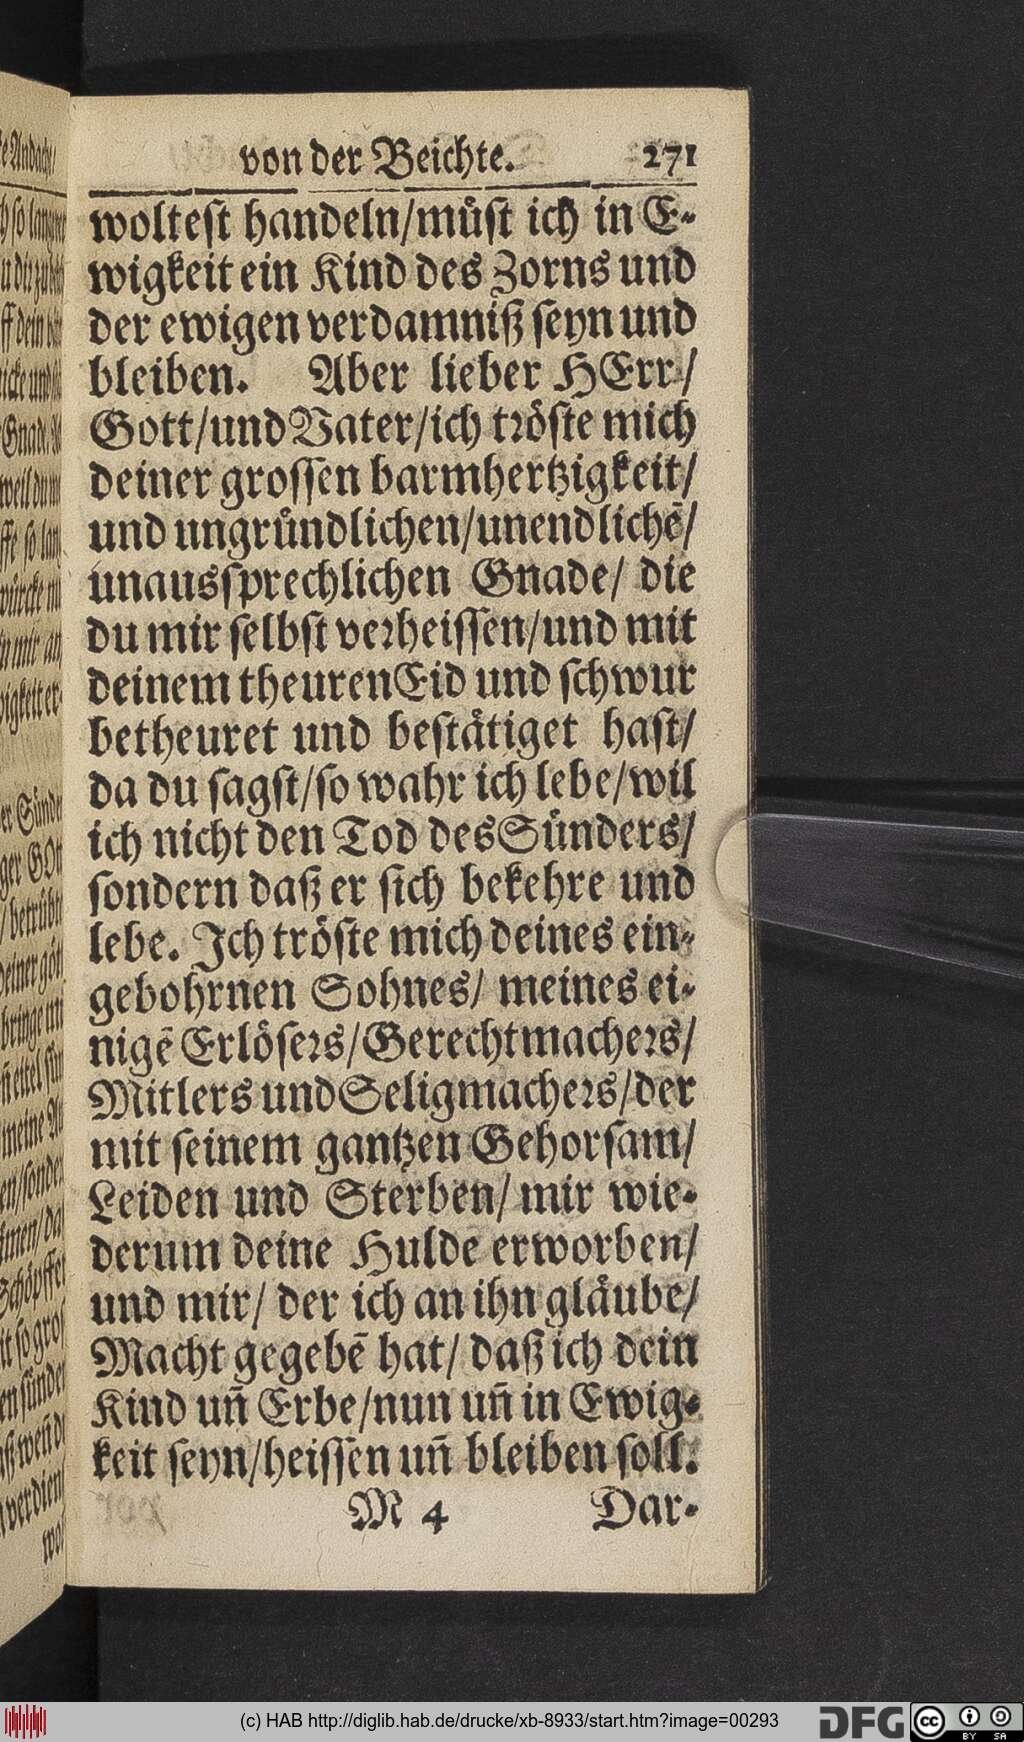 von der Beichte. 271
woltest handeln/müst ich in E-
wigkeit ein Kind des Zorns und
der ewigen verdamniß seyn und
bleiben. Aber lieber HErr/
Gott/und Vater/ich tröste mich
deiner grossen barmhertzigkeit/
und ungründlichen/unendlichē/
unaussprechlichen Gnade/ die
du mir selbst verheissen/und mit
deinem theuren Eid und schwur
betheuret und bestätiget hast/
da du sagst/so wahr ich lebe/wil
ich nicht den Tod des Sünders/
sondern daß er sich bekehre und
lebe. Ich tröste mich deines ein-
gebohrnen Sohnes/ meines ei-
nigē Erlösers/Gerechtmachers/
Mitlers und Seligmachers/der
mit seinem gantzen Gehorsam/
Leiden und Sterben/ mir wie-
derum deine Hulde erworben/
und mir/ der ich an ihn gläube/
Macht gegebē hat/ daß ich dein
Kind uñ Erbe/nun uñ in Ewig-
keit seyn/heissen uñ bleiben soll.
M 4 Dar-
(c) HAB http://diglib.hab.de/drucke/xb-8933/start.htm?image=00293
DFG cc BY SA